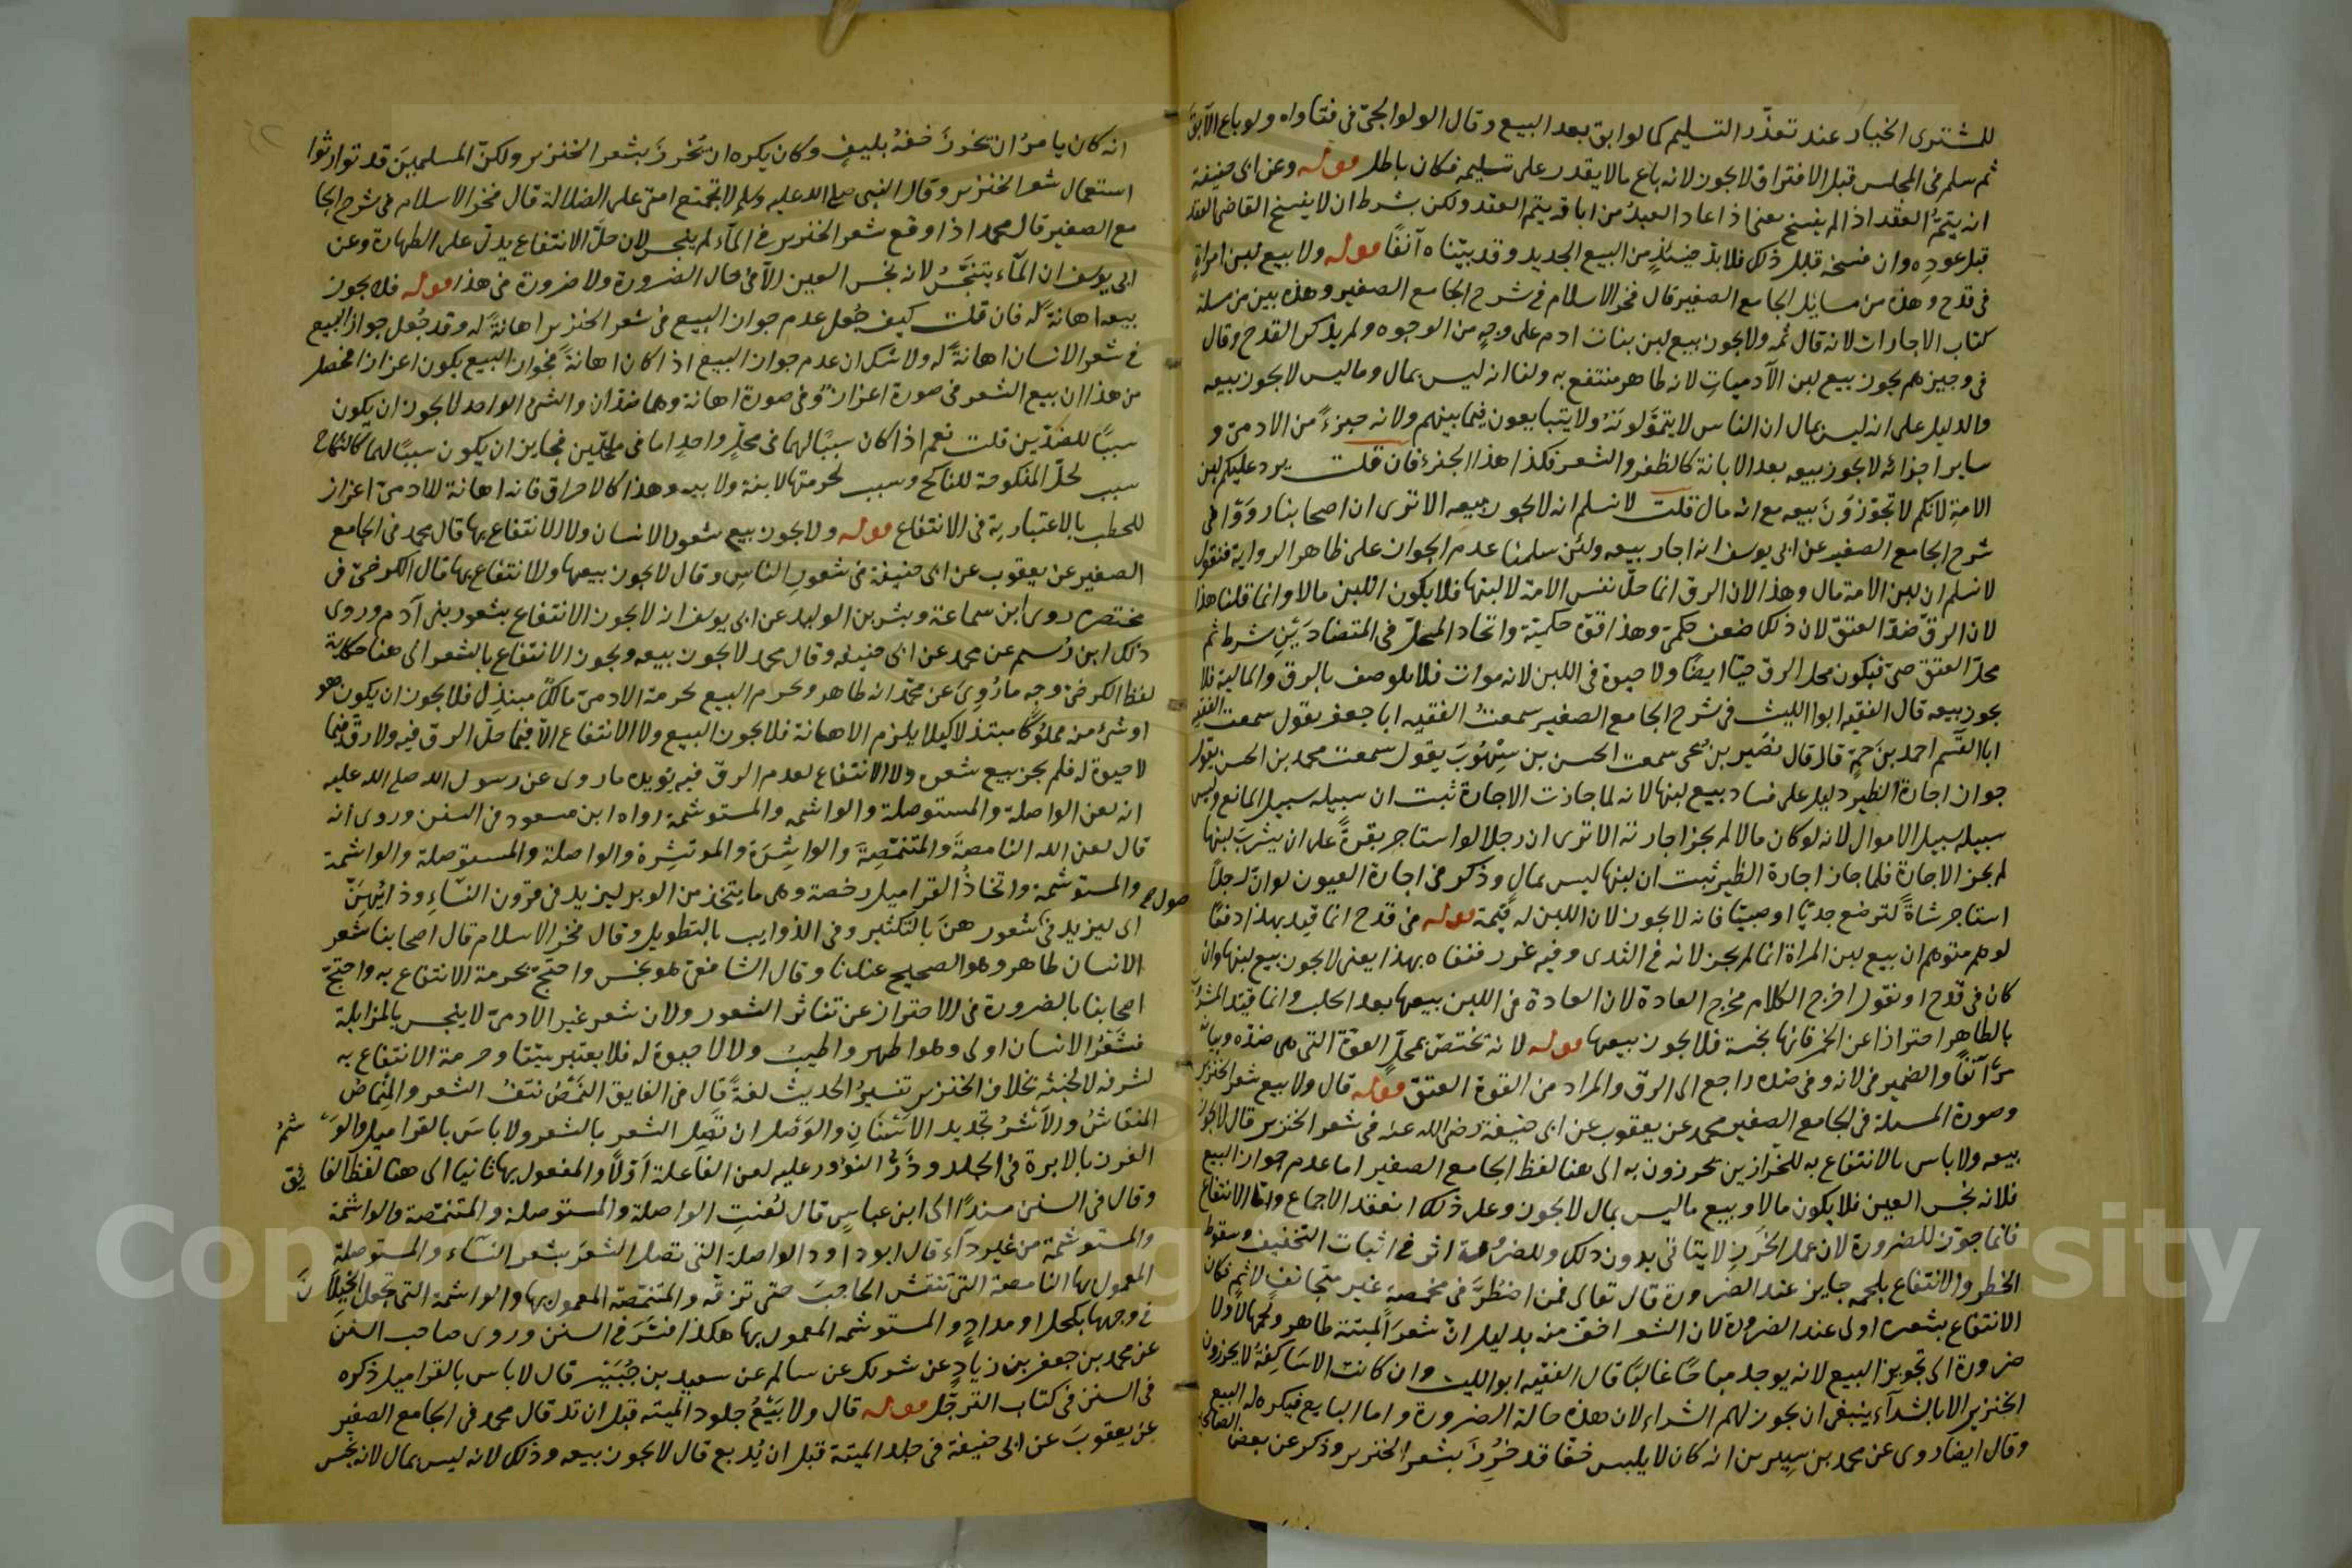 للمشترى الخيار عند تعذّر التسليم كما لو ابق بعد البيع وقال الولوالجىّ فى فتاواه ولو باع الآبق
ثم سلم فى المجلس قبل الافتراق لا يجوز لانه باع مالا يقدر على تسليمه فكان باطلا قوله وعن ابى حنيفة
انه يتمّ العقد اذا لم يفسخ يعنى اذا عاد العبدُ من اباقه يتم العقد ولكن بشرط ان لا يفسخ القاضى العقد
قبل عودِه وان فسخه قبل ذلك فلا بدّ حينئذٍ من البيع الجديد وقد بيّنّاه آنفًا قوله ولا بيع لبن امراةٍ
فى قدح وهذه من مسائل الجامع الصغير قال فخر الاسلام فى شرح الجامع الصغير وهذه بين من مسلة
كتاب الاجارات لانه قال ثمه ولا يجوز بيع لبن بنات ادم على وجهٍ من الوجوه ولم يذكر القدح وقال
فى وجيزهم يجوز بيع لبن الآدميات لانه طاهر منتفع به ولنا انه ليس بمال وما ليس لا يجوز بيعه
والدليل على انه ليس بمال ان الناس لا يتموّلونهُ ولا يتبايعون فيما بينهم ولانه جزءٌ من الادمىّ و
ساير اجزائه لا يجوز بيعه بعد الابانة كالظفر والشعر فكذا هذا الجزء فان قلت يرد عليكم لبن
الامةِ لانكم لا تجوّزوُنَ بيعه مع انه مال قلت لا نسلم انه لا يجوز بيعه الا ترى ان اصحابنا روَوْا فى
شرح الجامع الصغير عن ابى يوسف انه اجاز بيعه ولئن سلمنا عدم الجواز على ظاهر الرواية فنقول
لا نسلم ان لبن الامة مال وهذا لان الرق انما حلّ نفس الامة لا لبنها فلا يكون اللبن مالا وانما قلنا هذا
لان الرقّ ضدّ العتق لان ذلك ضعف حكمىّ وهذا قوّة حكميّة واتحاد المحلّ فى المتضادَيْنِ شرط ثم
محلّ العتق حىّ فيكون محل الرق حيّا ايضًا ولا حيوة فى اللبن لانه موات فلا يوصف بالرق والمالية فلا
يجوز بيعه قال الفقيه ابو الليث فى شرح الجامع الصغير سمعتُ الفقيه ابا جعفر يقول سمعت الفقيه
ابا القسم احمد بن حمٍ قال قال نصَير بن يحيى سمعت الحسن بن سيهُوبَ يقول سمعت محمد بن الحسن يقول
جواز اجارة الظير دليل على فساد بيع لبنها لانه لما جازت الاجارة ثبت ان سبيله سبيل المنافع وليس
سبيله سبيل الاموال لانه لو كان مالا لم يجز اجارته الا ترى ان رجلا لو استاجر بقرةً على ان يشربَ لبنها
لم يجز الاجارة فلما جاز اجارة الظير ثبت ان لبنها ليس بمال وذكر فى اجارة العيون لو انّ رجلاً
استاجر شاةً لترضع جديًا او صبيًا فانه لا يجوز لان اللبن له قيمة قوله فى قدح انما قيد بهذا دفعًا
لوهم متوهم ان بيع لبن المراة انما لم يجز لانه فى الثدى وفيه غرر فنفاه بهذا يعنى لا يجوز بيع لبنها وان
كان فى قدح او نقول اخرج الكلام مخرج العادة لان العادة فى اللبن بيعها بعد الحلب وانما قيّد المشروب
بالطاهر احترازا عن الخمر فانها نجسة فلا يجوز بيعها قوله لانه تختصّ بمحلّ القوّة التى هى ضدّه وبيانه
مرّ آنفًا والضمير فى لانه وفى ضده راجع الى الرق والمراد من القوة العتق قوله قال ولا بيع شعر الخنزير
وصورة المسلة فى الجامع الصغير محمد عن يعقوب عن ابى حنيفة رضى الله عنه فى شعر الخنزير قال لا يجوز
بيعه ولا باس بالانتفاع به للخرازين يخرزون به الى هنا لفظ الجامع الصغير اما عدم جواز البيع
فلانه نجس العين فلا يكون مالا وبيع ما ليس بمال لا يجوز وعلى ذلك انعقد الاجماع وامّا الانتفاع
فانما جوّز للضرورة لان عمل الخَرزِ لا يتاتى بدون ذلك وللضرورة اثر فى اثبات التخفيف وسقوط
الخطر والانتفاع بلحمه جايز عند الضرورة قال تعالى فمن اضطُرَّ فى مخمصةٍ غير متجانفٍ لاثمٍ فكان
الانتفاع بشعره اولى عند الضرورة لان الشعر اخفّ منه بدليل انّ شعرَ الميتة طاهر ولحمها لا ولا
ضرورة الى تجويز البيع لانه يوجد مباحًا غالبًا قال الفقيه ابو الليث وان كانت الاساكفةُ لا يجدون
الخنزير الا بالشراء ينبغى ان يجوز لهم الشراء لان هذه حالة الضرورة واما البايع فيكره له البيع
وقال ايضا روى عن محمد بن سيرين انه كان لا يلبس خفًا قد خُرِزَ بشعر الخنزير وذكر عن بعض الصحابة
انه كان يامرُ ان تخرزَ خفهُ بليفٍ وكان يكره ان تُخرزَ بشعر الخنزير ولكنّ المسلمينَ قد توارثوا
استعمال شعر الخنزير وقال النبى صلى الله عليه وسلم لا تجتمع امتى على الضلالة قال فخر الاسلام فى شرح الجا
مع الصغير قال محمد اذا وقع شعر الخنزير فى المآء لم ينجس لان حلّ الانتفاع يدلّ على الطهارة وعن
ابى يوسف ان المآء يتنجّسُ لانه نجس العين الّا فى حال الضرورة ولا ضرورة فى هذا قوله فلا يجوز
بيعه اهانةً له فان قلت كيف جُعل عدم جواز البيع فى شعر الخنزير اهانةً له وقد جُعل جواز البيع
فى شعر الانسان اهانةً له ولا شك ان عدم جواز البيع اذا كان اهانةً فجواز البيع يكون اعزازا فحصل
من هذا ان بيع الشعر فى صورة اعزازٌ وفى صورة اهانة وهما ضدّان والشئ الواحد لا يجوز ان يكون
سببًا للضدّين قلت نعم اذا كان سببًا لهما فى محلٍّ واحدٍ اما فى محلّين فجايز ان يكون سببًا لهما كالنكاح
سبب لحلّ المنكوحة للناكح وسبب لحرمتها لابنه ولابيه وهذا كالاحراق فانه اهانة للادمىّ اعزاز
للحطب بالاعتبار به فى الانتفاع قوله ولا يجوز بيع شعور الانسان ولا الانتفاع بها قال محمد فى الجامع
الصغير عن يعقوب عن ابى حنيفة فى شعورِ الناسِ وقال لا يجوز بيعها ولا الانتفاع بها قال الكرخىّ فى
مختصره روى ابن سماعة وبشر بن الوليد عن ابى يوسف انه لا يجوز الانتفاع بشعور بنى آدم وروى
ذلك ابن رُستم عن محمد عن ابى حنيفه وقال محمد لا يجوز بيعه ويجوز الانتفاع بالشعر الى هنا حكاية
لفظ الكرخىّ وجه ما رُوِىَ عن محمّد انه طاهر وحرم البيع لحرمة الادمىّ مالكٌ مبتذِل فلا يجوز ان يكون هو
او شئ منه مملوكًا مبتذلا كيلا يلزم الاهانة فلا يجوز البيع ولا الانتفاع الّا فيما حلّ الرقّ فيه ولا رقّ فيما
لا حيوة له فلم يجز بيع شعره ولا الانتفاع لعدم الرق فيه يؤيده ما روى عن رسول الله صلى الله عليه
انه لعن الواصلة والمستوصلة والواشمه والمستوشمة رواه ابن مسعود فى السنن وروى انه
قال لعن الله النامصةَ والمتنمّصةَ والواشِرَة والموتشِرة والواصلة والمستوصلة والواشمة
والمستوشمة واتخاذُ القراميل رخصة وهى ما يتخذ من الوبر ليزيد فى قرون النسآءِ وذوائبهنّ
صول صح
اى ليزيد فى شعورهنّ بالتكثير وفى الذوايب بالتطويل وقال فخر الاسلام قال اصحابنا شعر
الانسان طاهر وهو الصحيح عندنا وقال الشافعىّ هو نجس واحتجّ بحرمة الانتفاع به واحتجّ
اصحابنا بالضرورة فى الاحتراز عن تناثر الشعور ولان شعر غير الادمىّ لا ينجس بالمزايلة
فشعرُ الانسان اولى وهو اطهر واطيبُ ولا لا حيوة له فلا يعتبر ميّتا وحرمة الانتفاع به
لشرفه لا لخبثه بخلاف الخنزير تفسيرُ الحديث لغةً قال فى الفايق النَمَصُ نتفُ الشعر والمِنماصُ
المنقاشُ والاَشرُ تحديد الاسْنَانِ والوَصْل ان تصِل الشعر بالشعر ولا باسَ بالقراميل والوَشمُ
الغرز بالابرة فى الجلد وذَرُّ النؤور عليه لعن الفاعلة اوّلاً والمفعول بها ثانيا الى هنا لفظ الفايق
وقال فى السنن مسندًا الى ابن عباسٍ قال لُعنتِ الواصلة والمستوصلة والمتنمّصة والواشمة
والمستوشمة من غير دآء قال ابو داود الواصلة التى تصل الشعرَ بشعر النسآء والمستوصلة
المعمول بها النامصة التى تنقش الحاجبَ حتى ترقّه والمتنمّصة المعمول بها والواشمة التى تجعل الخِيلان
فى وجهها بكحل او مدادٍ والمستوشمة المعمول بها هكذا فسّرَ فى السنن وروى صاحب السنن
عن محمد بن جعفر بن زيادٍ عن شريك عن سالم عن سعيد بن جُبَيْر قال لا باس بالقراميل ذكره
فى السنن فى كتاب الترجّل قوله قال ولا بيْعُ جلود الميتة قبل ان تد قال محمد فى الجامع الصغير
عن يعقوبَ عن ابى حنيفة فى جلد الميتة قبل ان يُدبغ قال لا يجوز بيعه وذلك لانه ليس بمال لانه نجس
Copyright © King Saud University